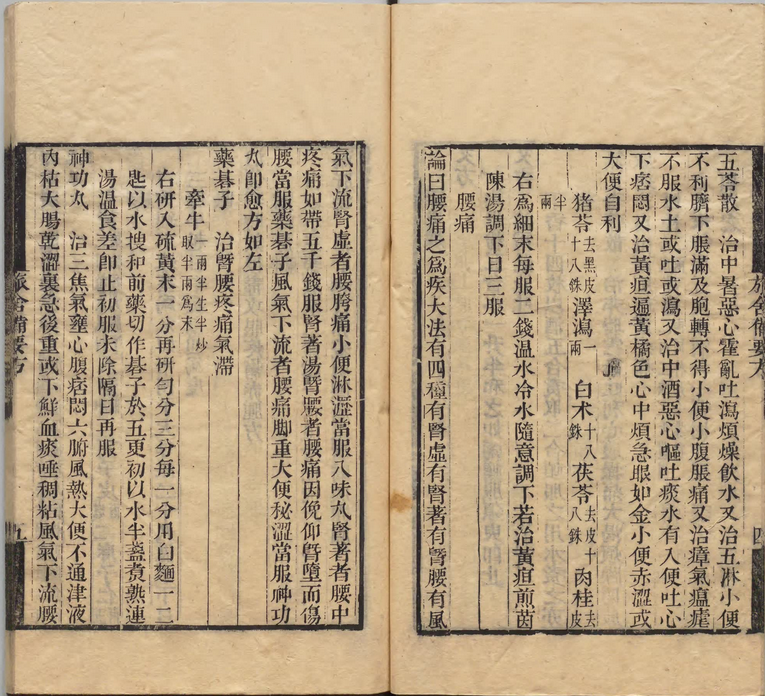 五苓散　治中暑惡心霍亂吐瀉煩燥飲水又治五淋小便
不利臍下脹滿及胞轉不得小便小腹脹痛又治瘴氣瘟瘧
不服水土或吐或瀉又治中酒惡心嘔吐痰水有入便吐心
下痞悶又治黃疸遍黃橘色心中煩急眼如金小便赤澀或
大便自利
猪苓去黑皮十八銖 澤瀉一兩半 白术十八銖 茯苓去皮十八銖 肉桂去皮
半兩
右為細末每服二錢溫水冷水隨意調下若治黃疸煎茵
陳湯調下日三服
腰痛
論曰腰痛之為疾大法有四種有腎虛有腎著有䐴腰有風
旅舍備要方
四
氣下流腎虛者腰胯痛小便淋瀝當服八味丸腎著者腰中
疼痛如帶五千錢服腎著湯䐴腰者腰痛因俛仰䐴墮而傷
腰當服藥碁子風氣下流者腰痛脚重大便秘澀當服神功
丸即愈方如左
藥碁子　治䐴腰疼痛氣滯
牽牛一兩半生半炒取半兩為末
右研入硫黃末一分再研勻分三分每一分用白麵一二
匙以水搜和前藥切作碁子於五更初以水半盞煮熟連
湯溫食差即止初服未除隔日再服
神功丸　治三焦氣壅心腹痞悶六腑風熱大便不通津液
內枯大腸乾澀裏急後重或下鮮血痰唾稠粘風氣下流腰
旅舍備要方
五